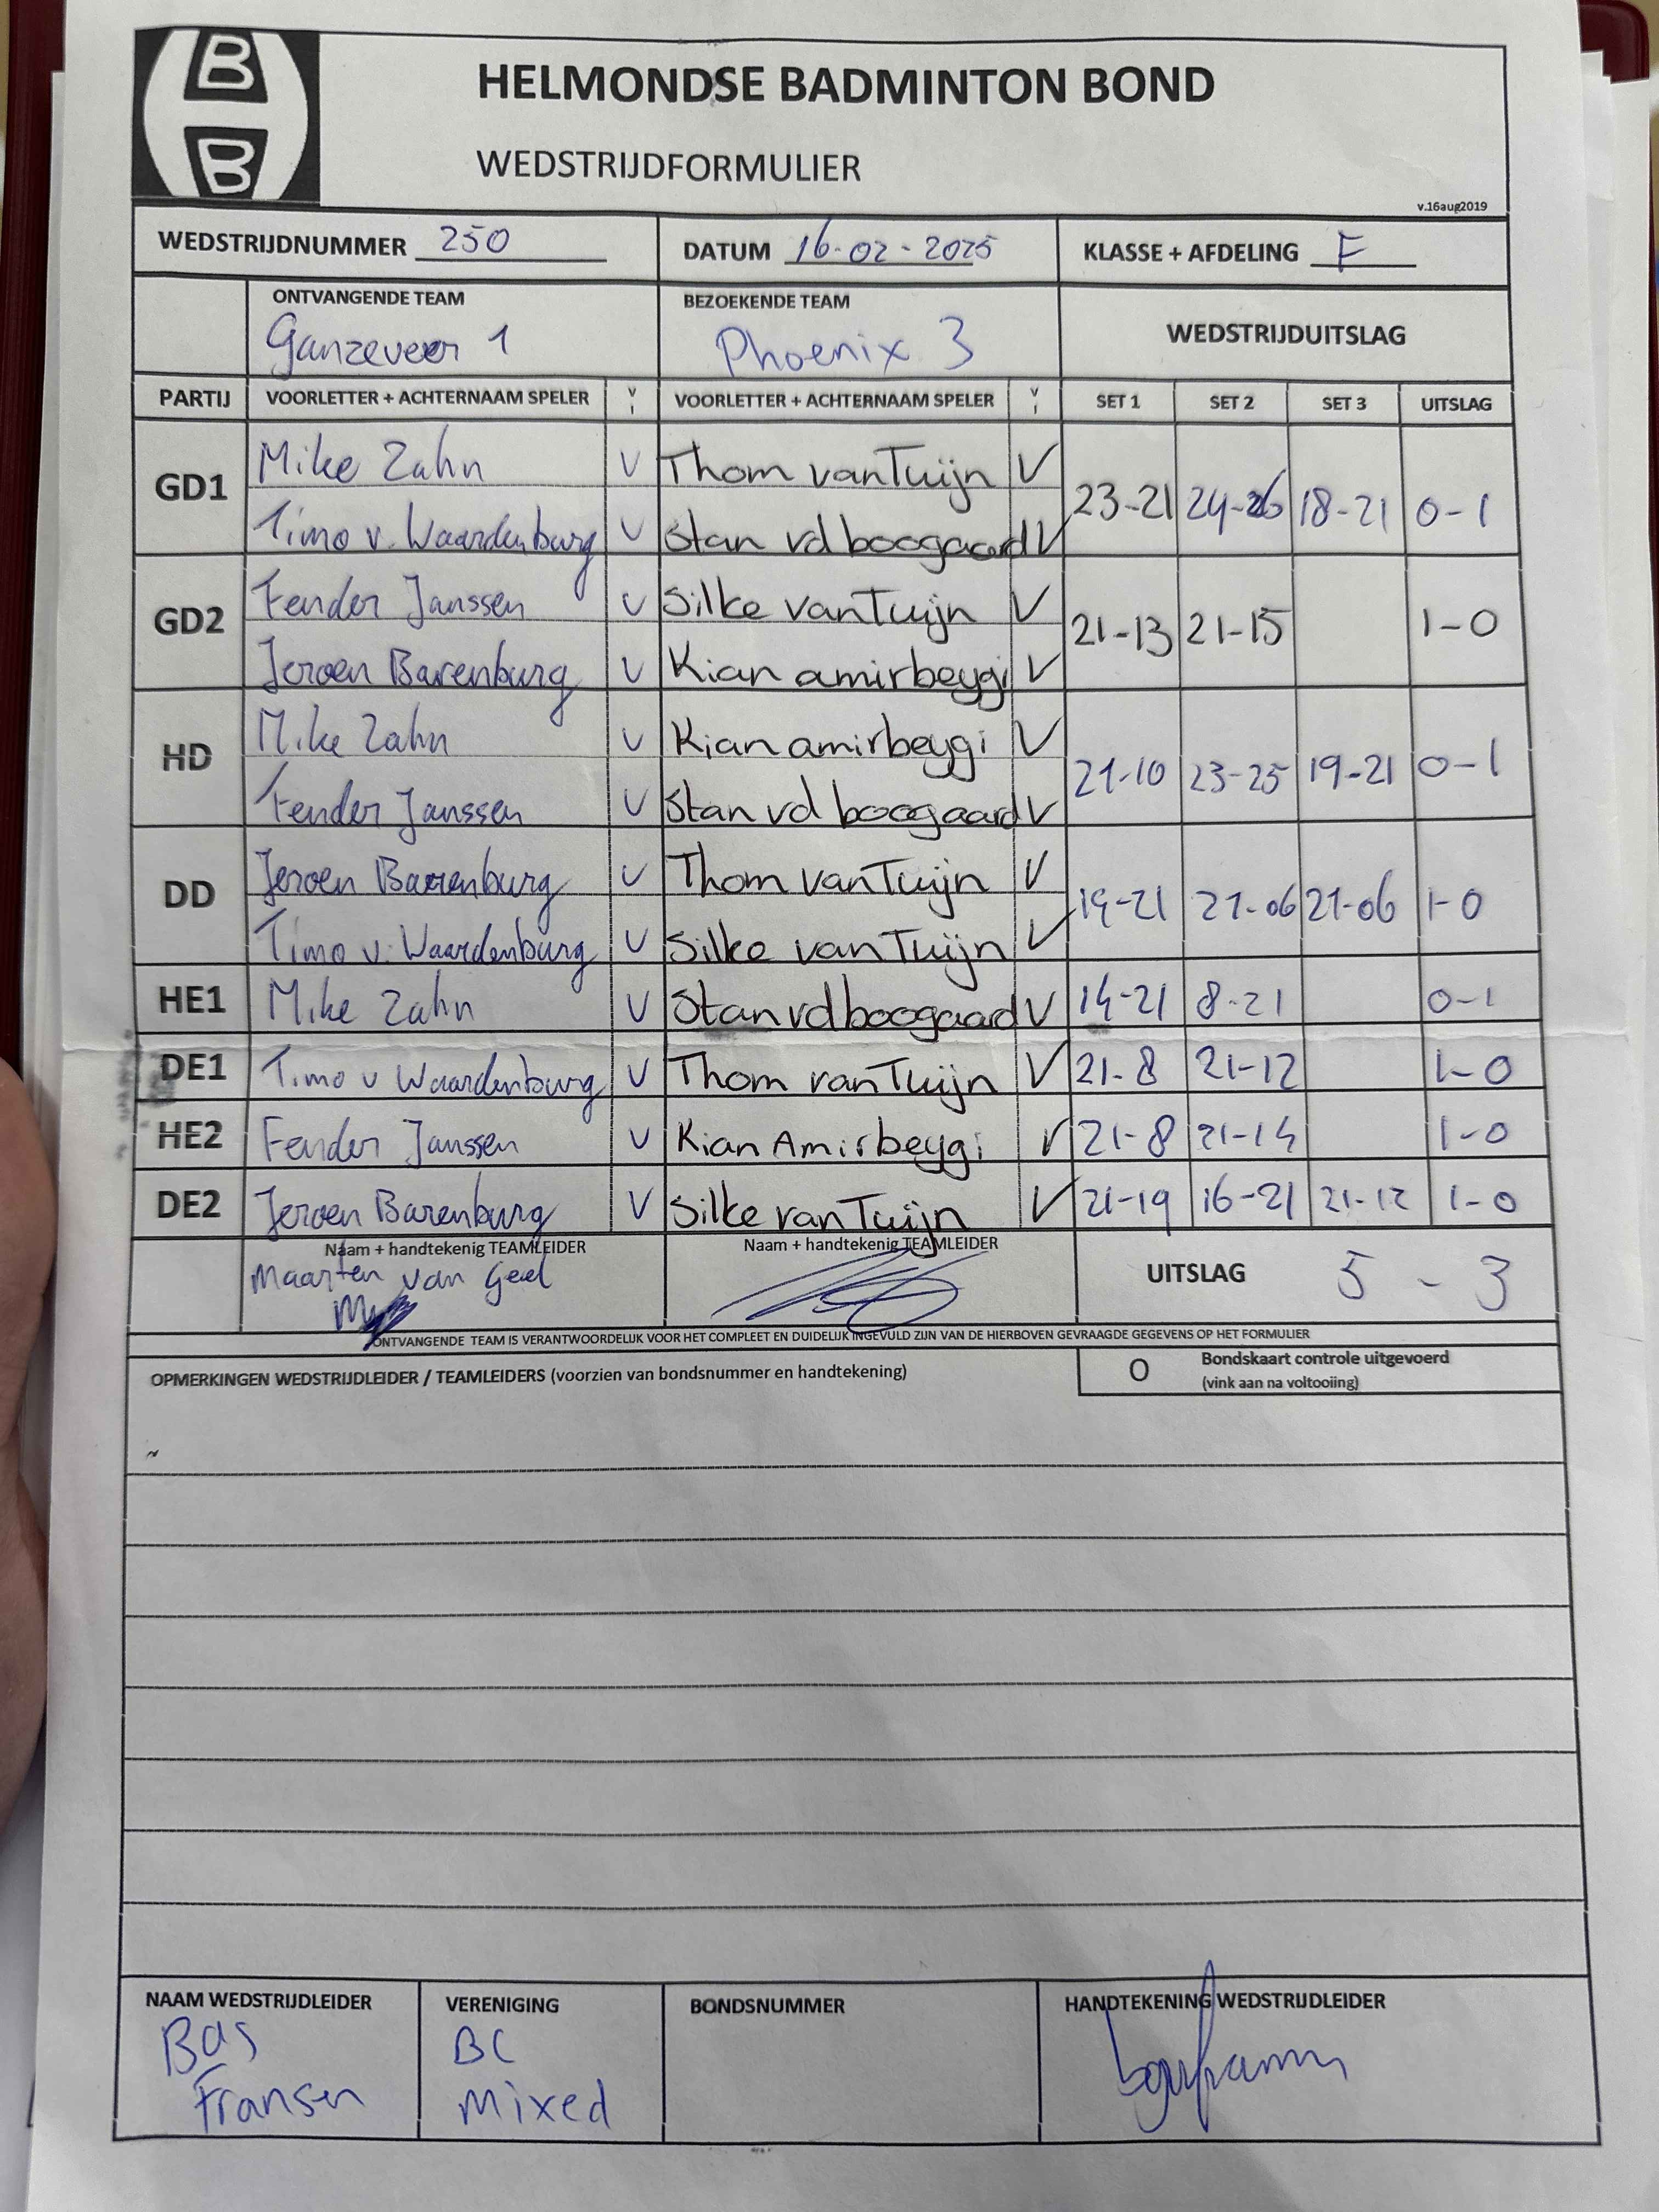 B
B
HELMONDSE BADMINTON BOND
WEDSTRIJDFORMULIER
v.16aug2019
WEDSTRIJDNUMMER 250 DATUM 16-02-2025 KLASSE + AFDELING F
ONTVANGENDE TEAM BEZOEKENDE TEAM WEDSTRIJDUITSLAG
Ganzeveer 1 Phoenix 3
PARTIJ VOORLETTER + ACHTERNAAM SPELER V I VOORLETTER + ACHTERNAAM SPELER V I SET 1 SET 2 SET 3 UITSLAG
GD1 Mike Zahn V Thom van Tuijn V 23-21 24-26 18-21 0-1
Timo v. Waardenburg V Stan vd boogaard V
GD2 Fender Janssen V Silke van Tuijn V 21-13 21-15 1-0
Jeroen Barenburg V Kian amirbeygi V
HD Mike Zahn V Kian amirbeygi V 21-10 23-25 19-21 0-1
Fender Janssen V Stan vd boogaard V
DD Jeroen Barenburg V Thom van Tuijn V 19-21 21-06 21-06 1-0
Timo v. Waardenburg V Silke van Tuijn V
HE1 Mike Zahn V Stan vd boogaard V 14-21 8-21 0-1
DE1 Timo v Waardenburg V Thom van Tuijn V 21-8 21-12 1-0
HE2 Fender Janssen V Kian Amirbeygi V 21-8 21-14 1-0
DE2 Jeroen Barenburg V Silke van Tuijn V 21-19 16-21 21-12 1-0
Naam + handtekenig TEAMLEIDER Naam + handtekenig TEAMLEIDER UITSLAG 5 - 3
Maarten van Geel
ONTVANGENDE TEAM IS VERANTWOORDELIJK VOOR HET COMPLEET EN DUIDELIJK INGEVULD ZIJN VAN DE HIERBOVEN GEVRAAGDE GEGEVENS OP HET FORMULIER
OPMERKINGEN WEDSTRIJDLEIDER / TEAMLEIDERS (voorzien van bondsnummer en handtekening)
O Bondskaart controle uitgevoerd
(vink aan na voltooiing)
NAAM WEDSTRIJDLEIDER VERENIGING BONDSNUMMER HANDTEKENING WEDSTRIJDLEIDER
Bas BC
Fransen Mixed